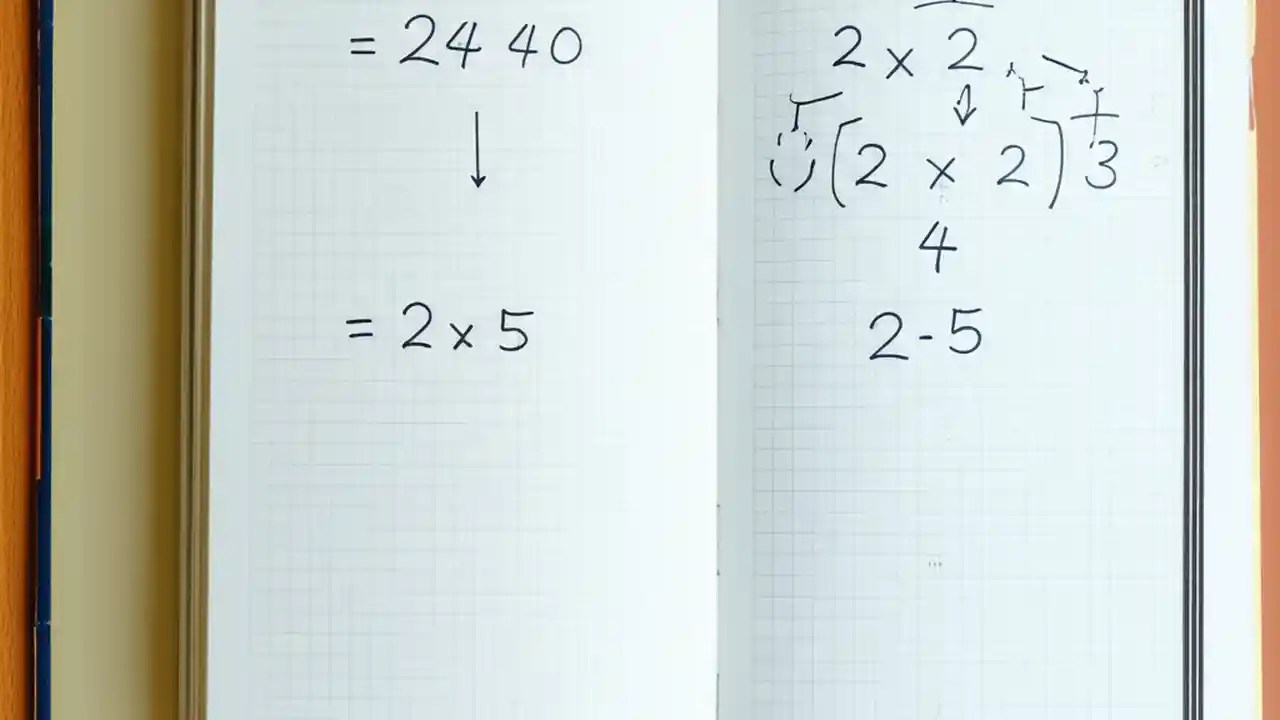 = 24 40
↓
= 2 x 5
2 x 2
(2 x 2) 3
4
2 - 5